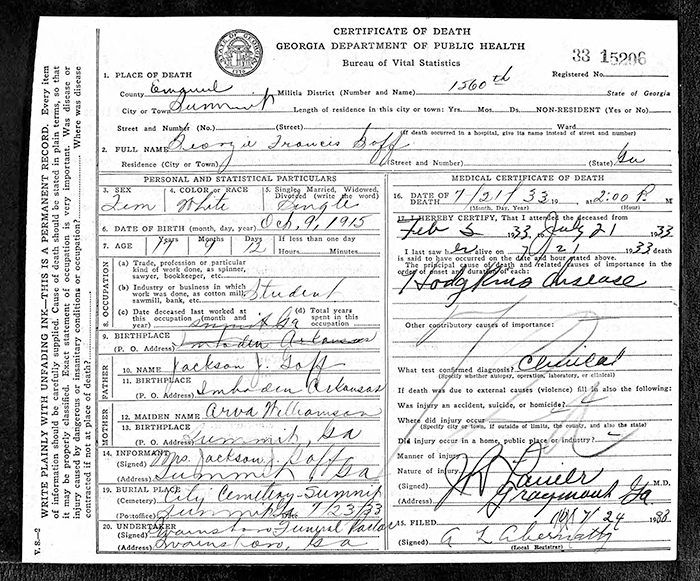 CERTIFICATE OF DEATH
GEORGIA DEPARTMENT OF PUBLIC HEALTH
Bureau of Vital Statistics
33 15206
Registered No.
1. PLACE OF DEATH
County Emanuel Militia District (Number and Name) 1560th State of Georgia
City or Town Summit Length of residence in this city or town: Yrs. Mos. Ds. NON-RESIDENT (Yes or No)
Street and Number (No.) (Street) Ward
(If death occurred in a hospital, give its name instead of street and number)
2. FULL NAME Georgie Francis Goff
Residence (City or Town) (Street and Number) (State) Ga
PERSONAL AND STATISTICAL PARTICULARS
3. SEX Fem
4. COLOR or RACE White
5. Single, Married, Widowed, Divorced (write the word) Single
6. DATE OF BIRTH (month, day, year) Oct, 9, 1915
7. AGE 17 9 12 If less than one day Hours Minutes
OCCUPATION
(a) Trade, profession or particular kind of work done, as spinner, sawyer, bookkeeper, etc.
(b) Industry or business in which work was done, as cotton mill, sawmill, bank, etc. Student
(c) Date deceased last worked at this occupation (month and year) of Summit Ga
(d) Total years spent in this occupation
9. BIRTHPLACE
(P. O. Address) Imboden Arkansas
FATHER
10. NAME Jackson J. Goff
11. BIRTHPLACE
(P. O. Address) Imboden Arkansas
MOTHER
12. MAIDEN NAME Arva Williamson
13. BIRTHPLACE
(P. O. Address) Summit, Ga
14. INFORMANT
(Signed) Mrs. Jackson J. Goff
(Address) Summit Ga
19. BURIAL PLACE
(Cemetery) City Cemetery-Summit
(Postoffice) Summit Ga 7/23/33
20. UNDERTAKER
(Signed) Swainsboro Funeral Parlor
(Address) Swainsboro, Ga
MEDICAL CERTIFICATE OF DEATH
16. DATE OF DEATH 7/21/33 19 at 2:00 P. M
(Month, Day, Year) (Hour)
17. I HEREBY CERTIFY, That I attended the deceased from
Feb 5 1933 July 21 1933
I last saw her alive on 7/21 1933 death
is said to have occurred on the date and hour stated above.
The principal cause of death and related causes of importance in the order of onset and duration of each:
Hodgkins disease
Other contributory causes of importance:
What test confirmed diagnosis? Clinical
(Specify whether autopsy, operation, laboratory, or clinical)
If death was due to external causes (violence) fill in also the following:
Was injury an accident, suicide, or homicide?
Where did injury occur
(Specify city or town, if outside of limits, the county, and also the state)
Did injury occur in a home, public place or industry?
Manner of injury
Nature of injury
(Signed) Lanier M.D.
(Address) Graymont Ga
15. FILED 7/24 1933
(Signed) A L Abernathy
(Local Registrar)
WRITE PLAINLY WITH UNFADING INK—THIS IS A PERMANENT RECORD. Every item of information should be carefully supplied. Cause of death should be stated in plain terms, so that it may be properly classified. Exact statement of occupation is very important. Was disease or injury caused by dangerous or insanitary conditions or occupation? Where was disease contracted if not at place of death?
V. S.—2